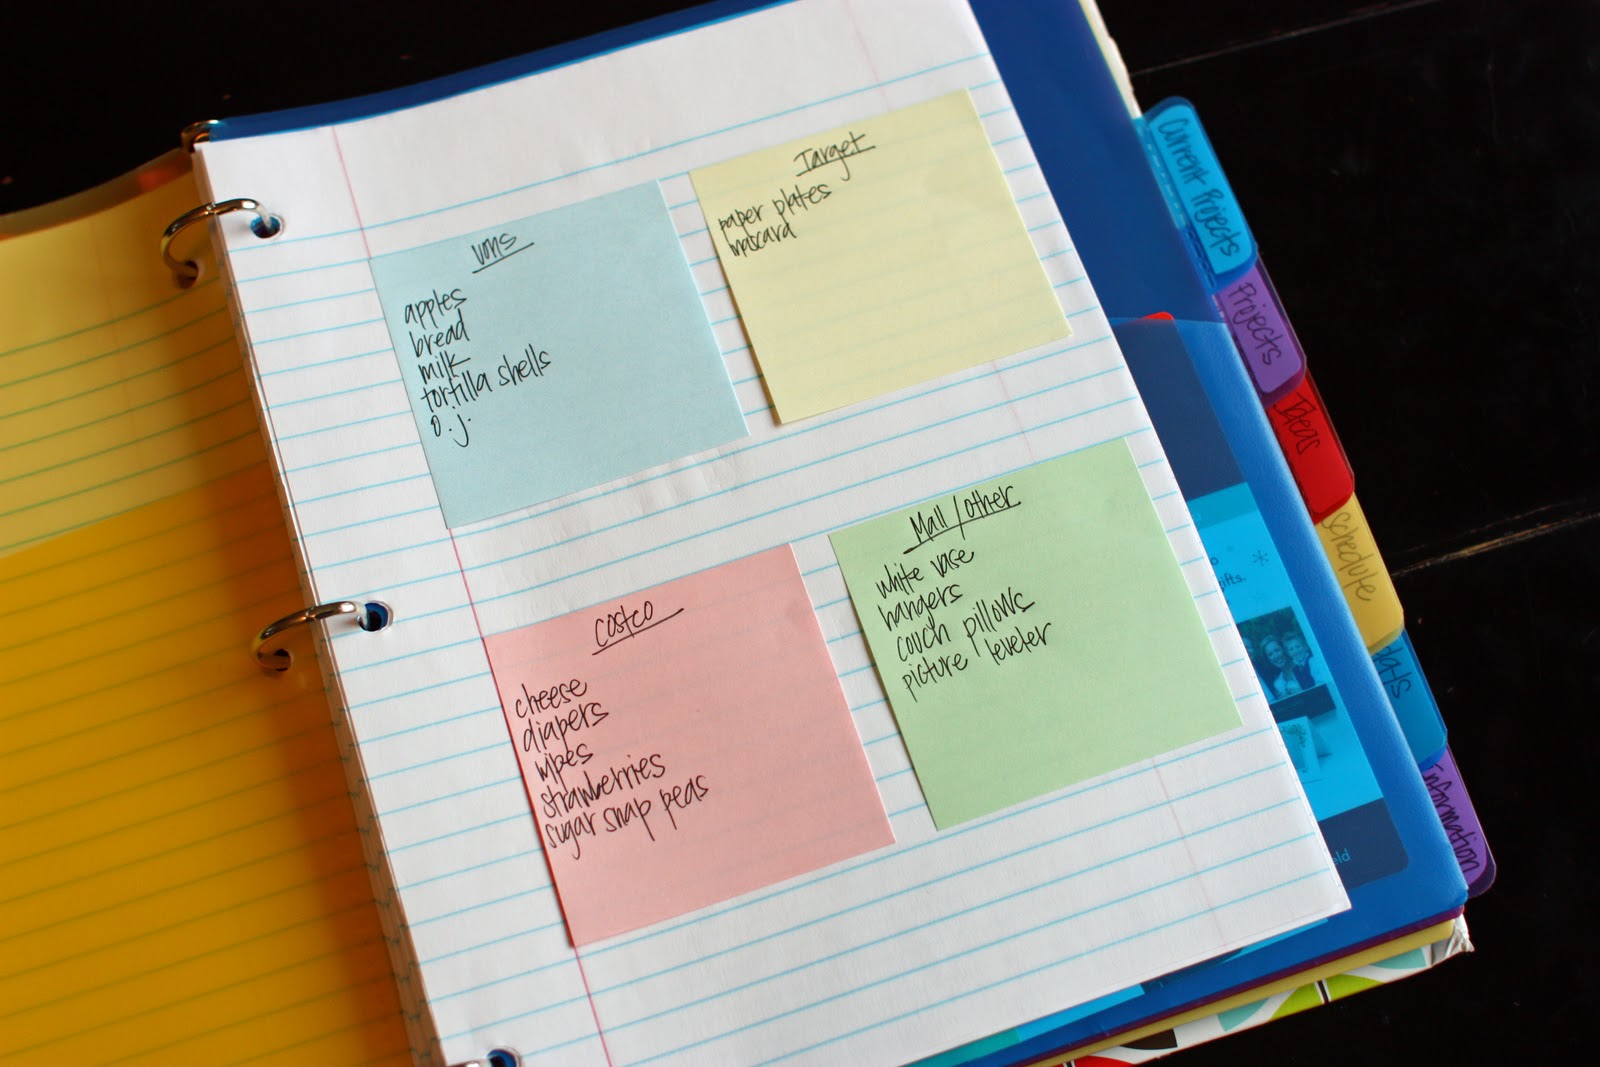 vons
apples
bread
milk
tortilla shells
o.j.
Target
paper plates
mascara
costco
cheese
diapers
wipes
strawberries
sugar snap peas
Mall/other
white vase
hangers
couch pillows
picture leveler
Current Projects
Projects
Ideas
Schedule
Information